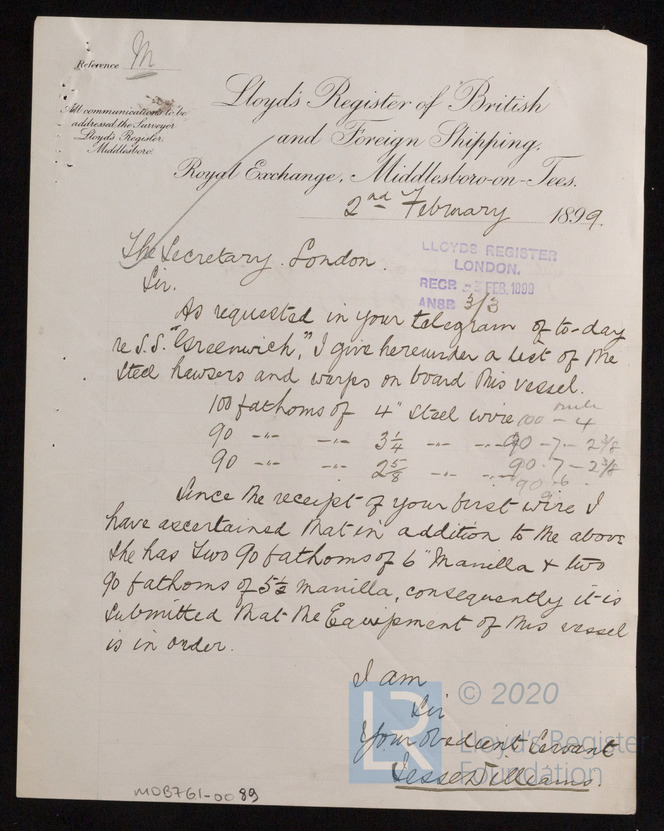 Reference M
All communications to be
addressed the Surveyor
Lloyd's Register.
Middlesboro'.
Lloyd's Register of British
and Foreign Shipping.
Royal Exchange, Middlesboro-on-Tees.
2nd February 1899.
The Secretary. London.
Sir.
LLOYDS REGISTER
LONDON.
RECD -3 FEB. 1899
ANSD 3/3
As requested in your telegram of to-day
re S.S. "Greenwich," I give hereunder a list of the
steel hawsers and warps on board this vessel.
100 fathoms of 4" steel wire
90 -"- -"- 3 1/4 -"- -"-
90 -"- -"- 2 5/8 -"- -"-
rule
100 - 4
90 - 7 - 2 3/8
90 . 7 - 2 3/8
90 . 6 .
Since the receipt of your first wire I
have ascertained that in addition to the above
she has two 90 fathoms of 6" Manilla & two
90 fathoms of 5 1/2 manilla, consequently it is
submitted that the Equipment of this vessel
is in order.
I am
Sir
Your obedient Servant
Jesse Williams.
© 2020
LR
Lloyd's Register
Foundation
MDB761-0089